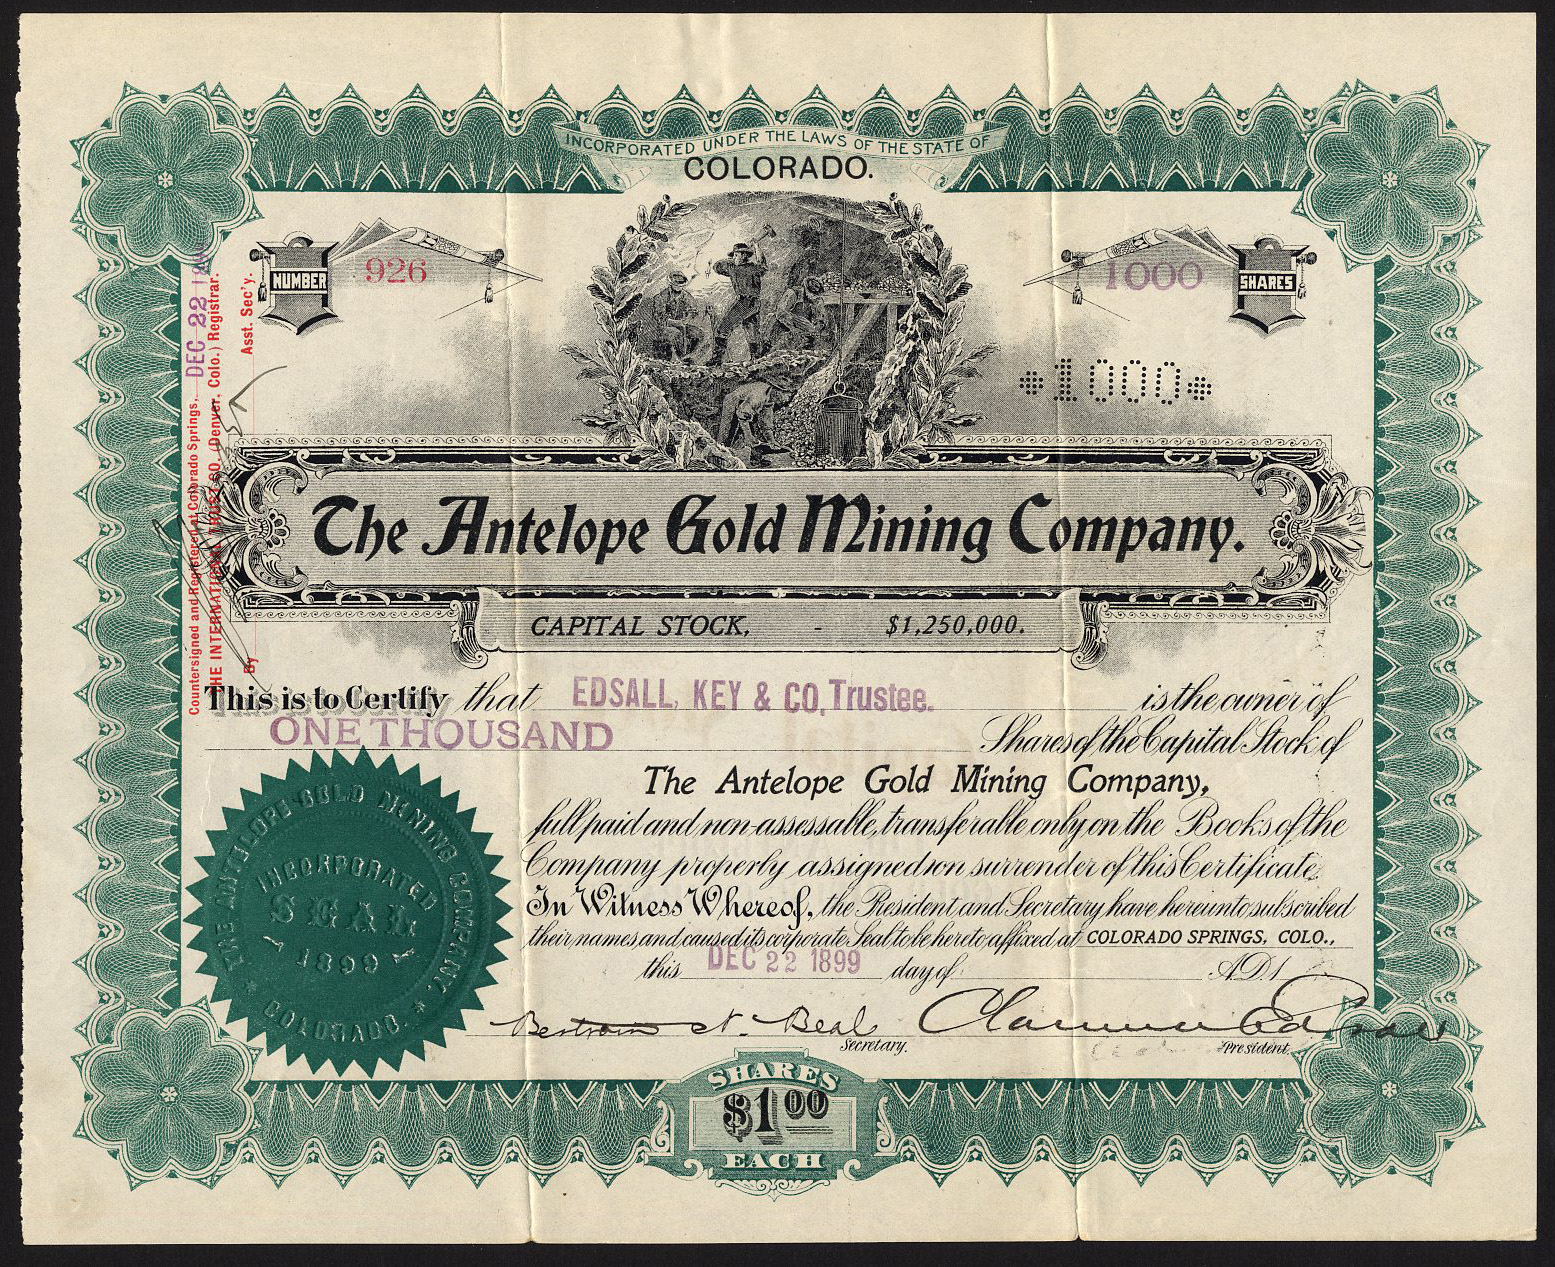 INCORPORATED UNDER THE LAWS OF THE STATE OF
COLORADO.
NUMBER 926
1000 SHARES
*1000*
The Antelope Gold Mining Company.
CAPITAL STOCK, - $1,250,000.
Countersigned and Registered at Colorado Springs, DEC 22
THE INTERNATIONAL TRUST CO. (Denver, Colo.) Registrar.
By Asst. Sec'y.
This is to Certify that EDSALL, KEY & CO, Trustee. is the owner of
ONE THOUSAND Shares of the Capital Stock of
The Antelope Gold Mining Company,
full paid and non-assessable, transferable only on the Books of the
Company properly assigned on surrender of this Certificate.
In Witness Whereof, the President and Secretary have hereunto subscribed
their names and caused its corporate Seal to be hereto affixed at COLORADO SPRINGS, COLO.,
this DEC 22 1899 day of A.D. 1
Beal
Clarence Edsall
Secretary.
President.
THE ANTELOPE GOLD MINING COMPANY.
INCORPORATED
SEAL
1899
* COLORADO. *
SHARES
$1.00
EACH